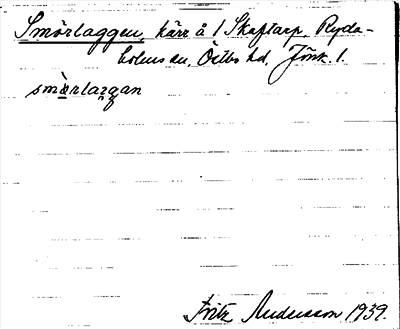 Smörlaggen, kärr å 1 Skaftarp, Ryda-
holms sn, Östbo hd, Jönk. l.
smörlaggan
Fritz Andersson 1939.